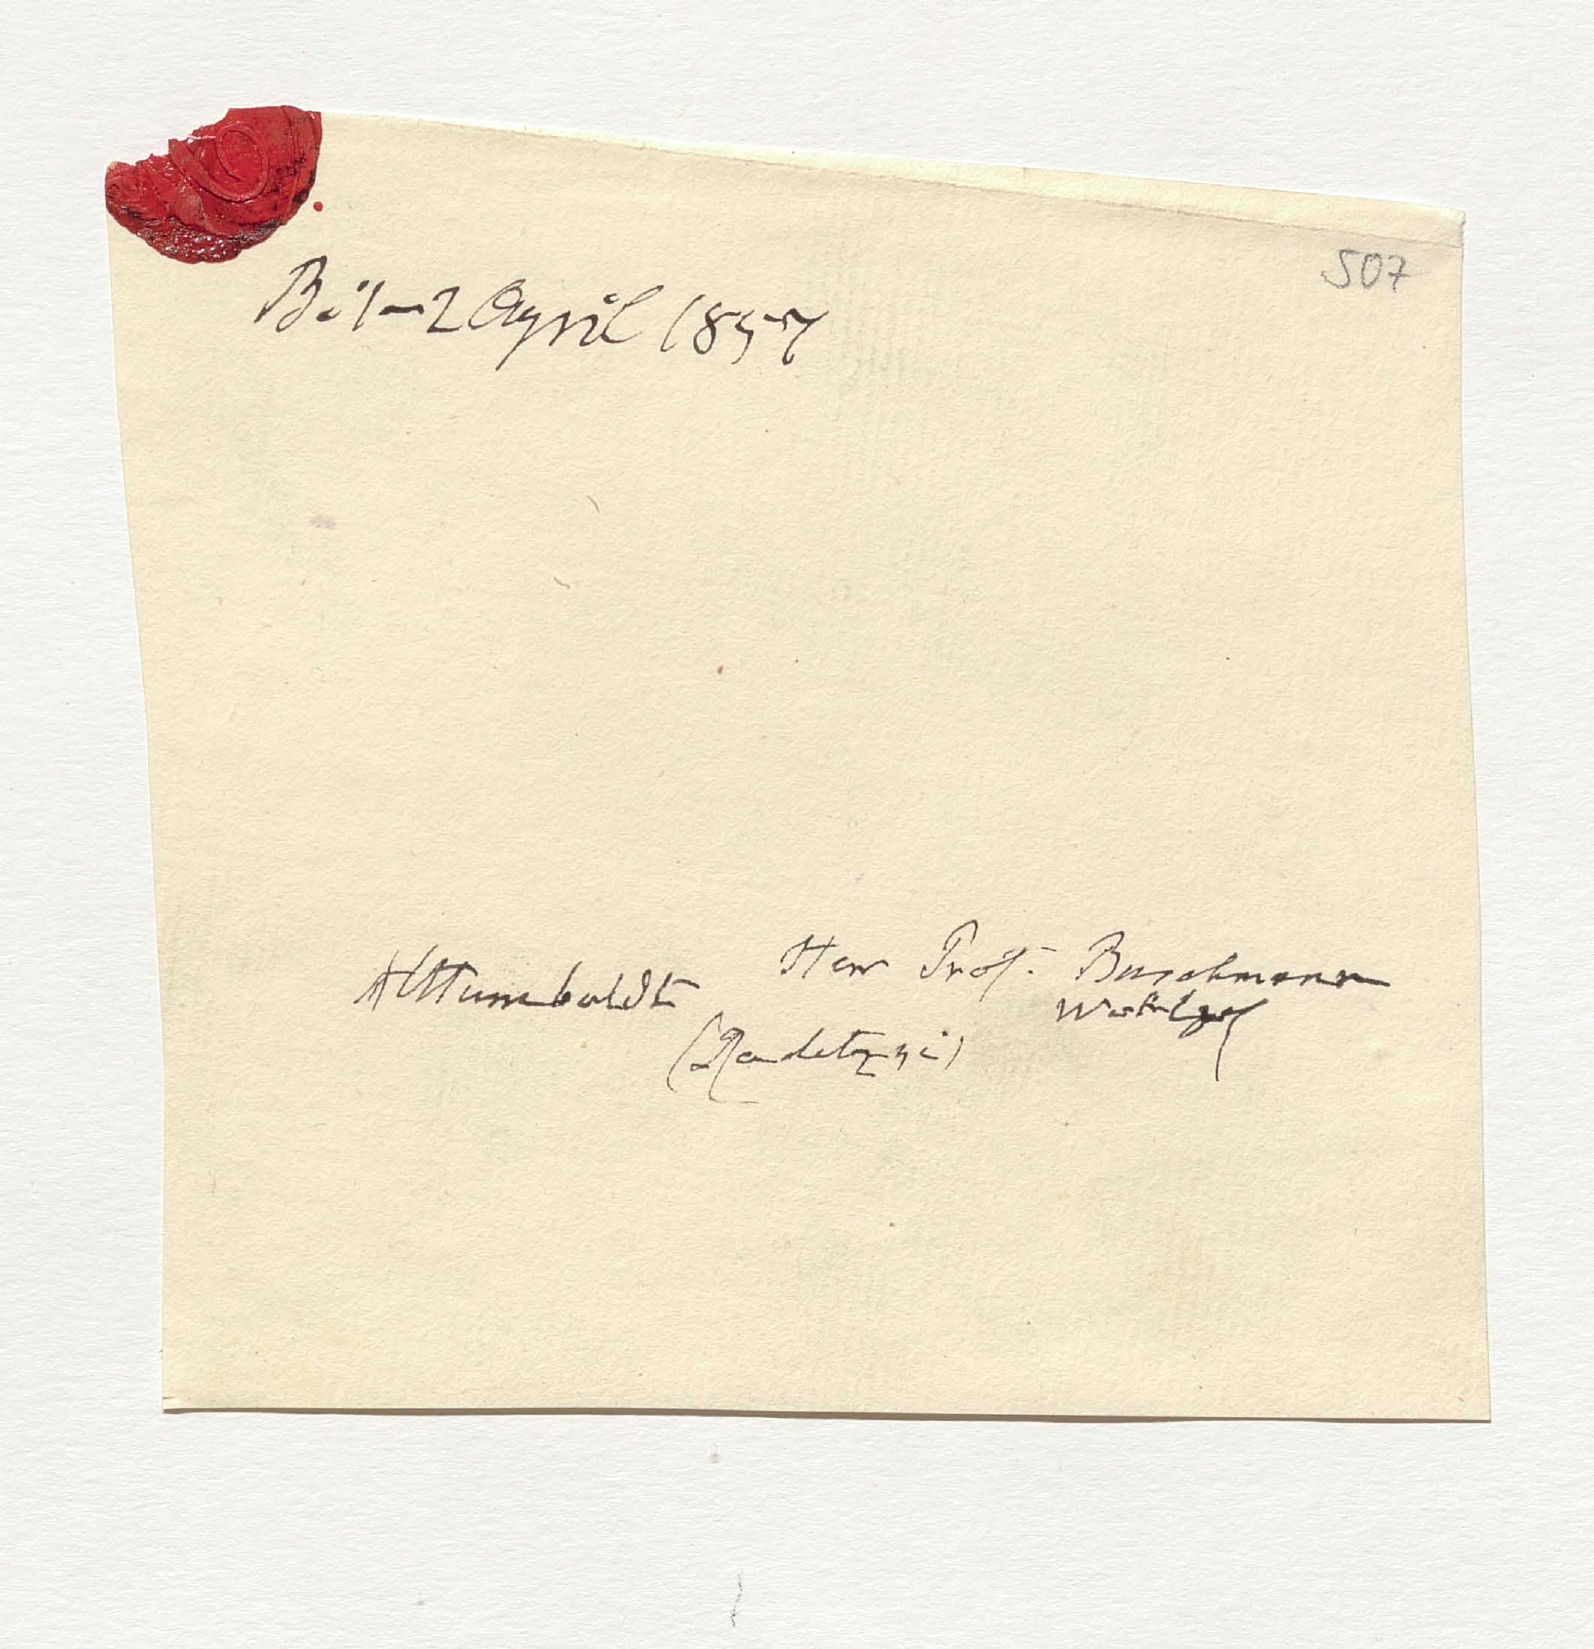 507
B. 1–2 April 1857
AlHumboldt
Herr Prof. Buschmann
Wohlgeb
(Radetzki)